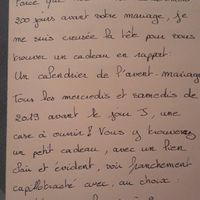 300 jours avant votre mariage, je
me suis creusée la tête pour vous
trouver un cadeau en rapport :
Un calendrier de l'avent-mariage
Tous les mercredis et samedis de
2019 avant le jour J, une
case à ouvrir ! Vous y trouverez
un petit cadeau, avec un lien
clair et évident, voir franchement
capillotracté avec, au choix :